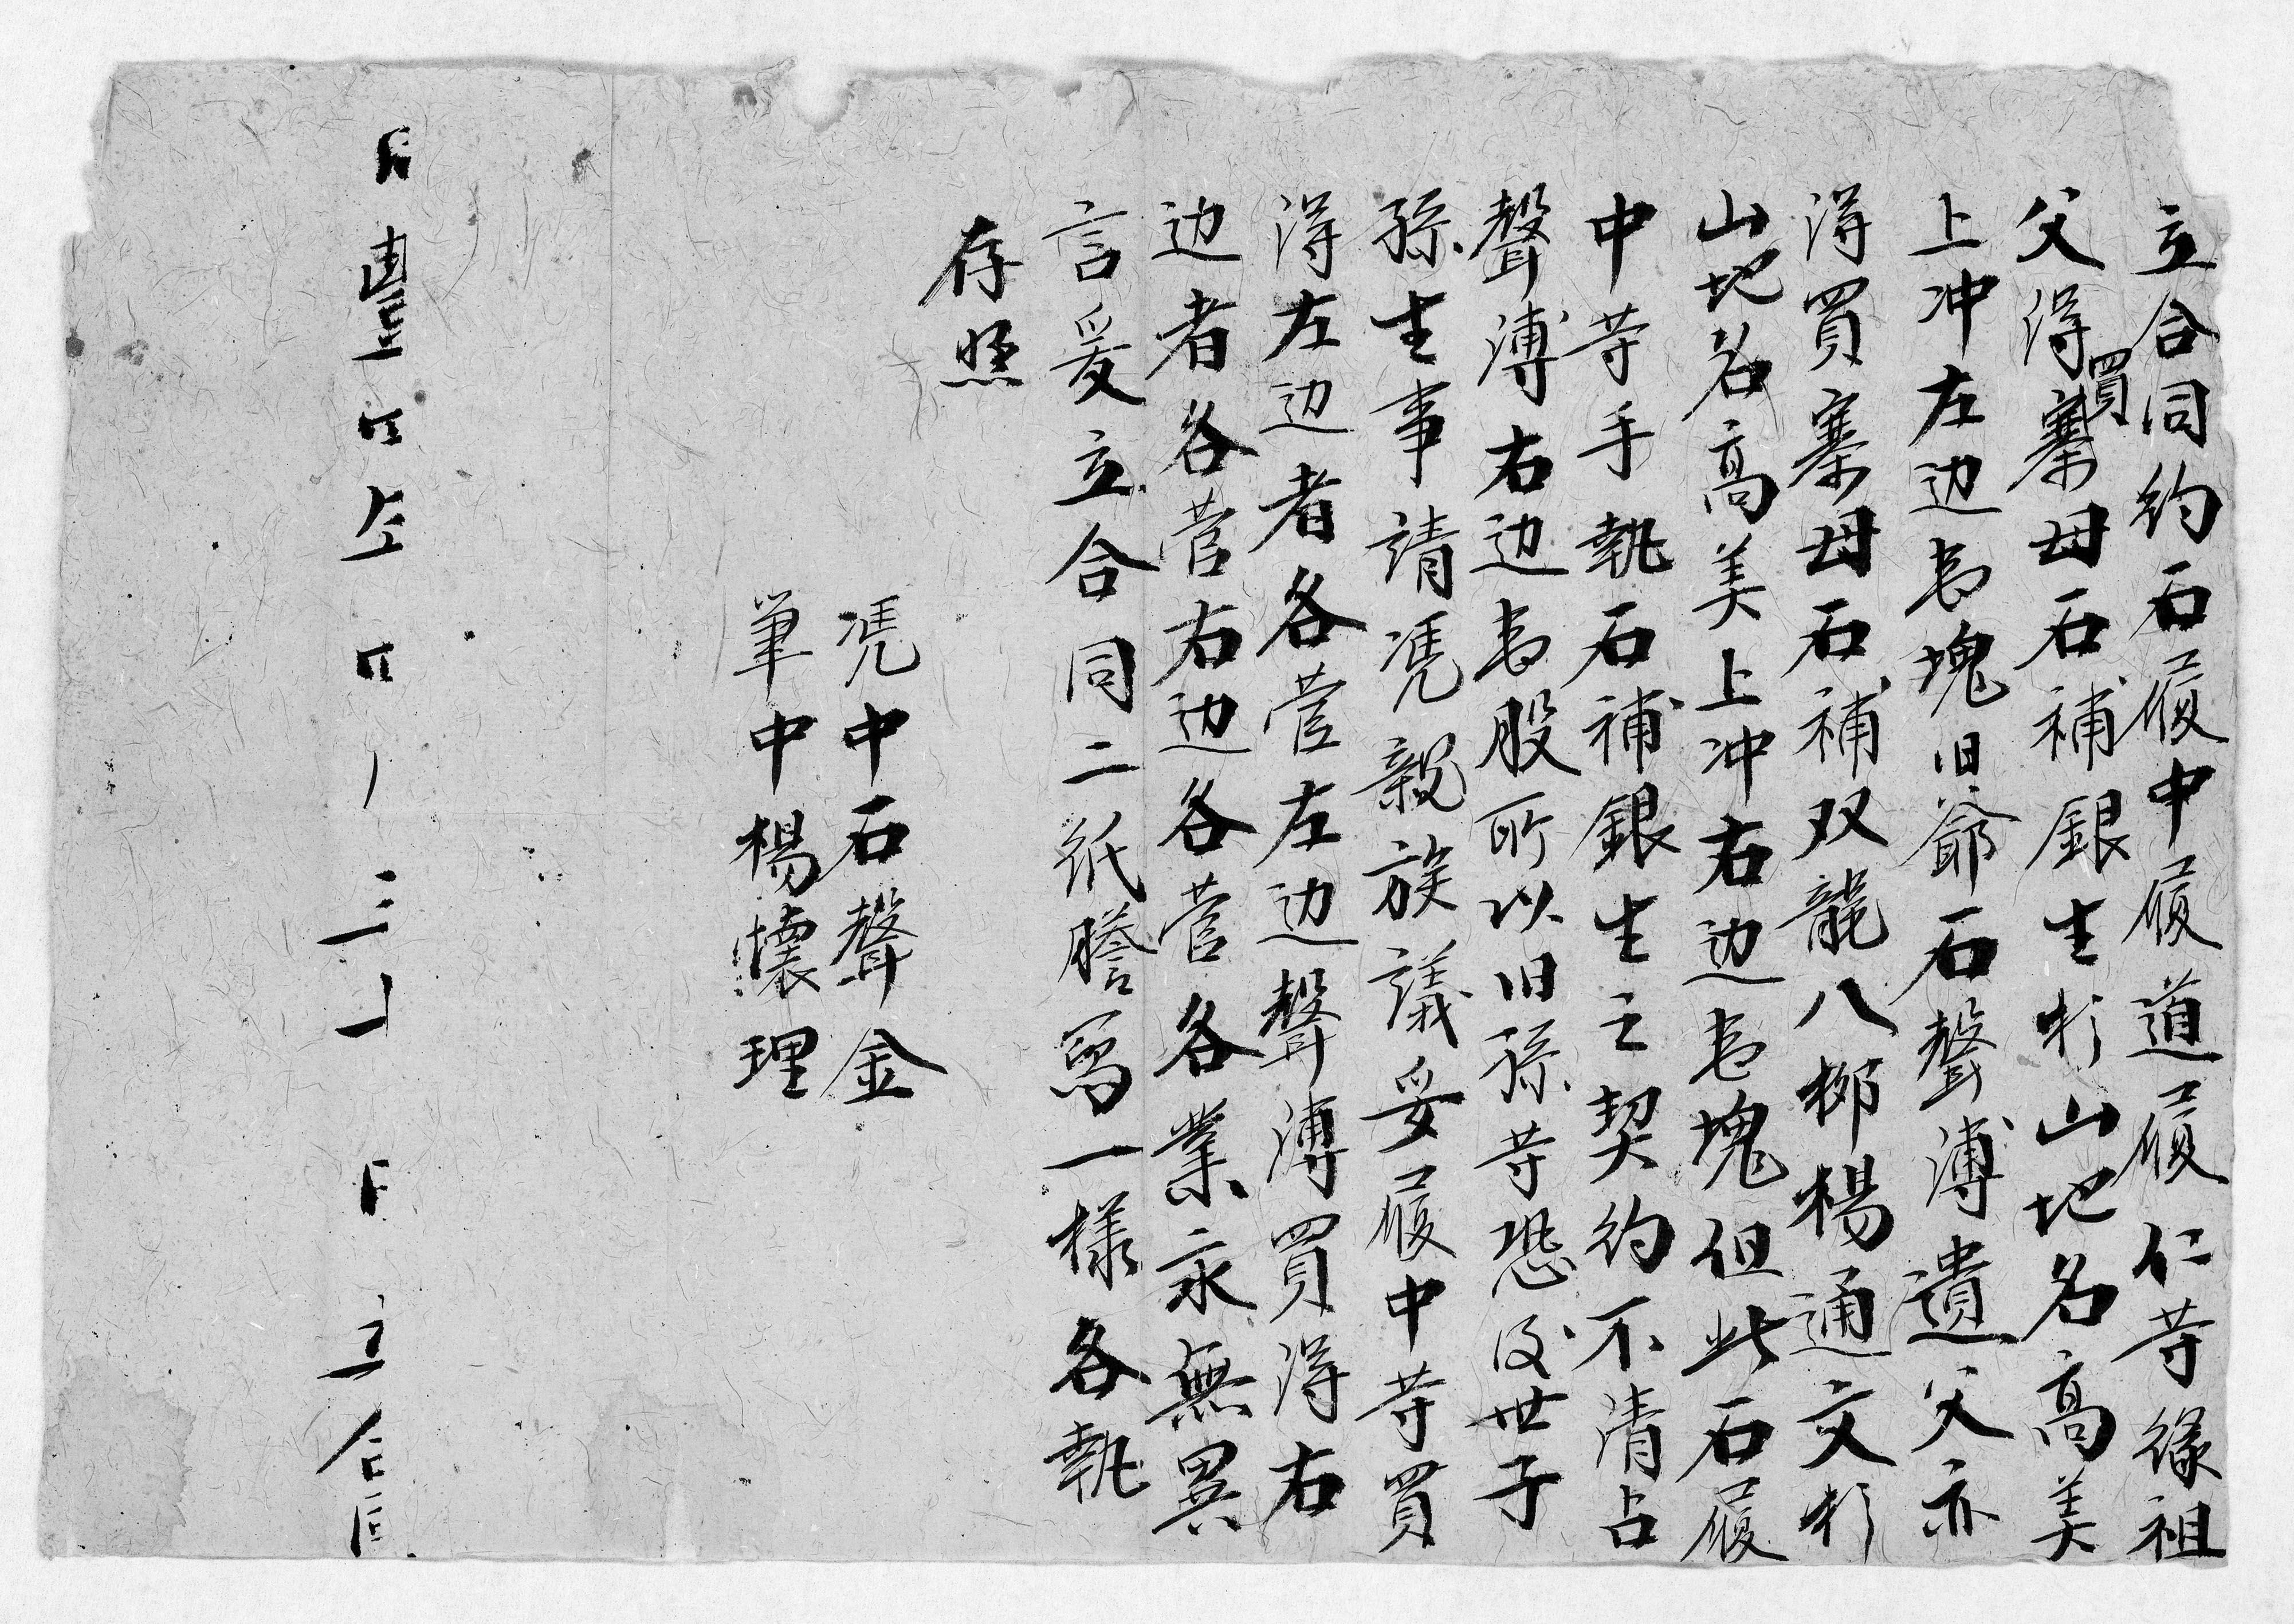 立合同約石履中履道履仁等緣祖
父得買寨母石補銀生杉山地名高美
上冲左边壹塊旧爺石聲溥遺父亦
得買寨母石補双龍八郎楊通文杉
山地名高美上冲右边壹塊但此石履
中等手執石補銀生之契約不清占
聲溥右边壹股所以旧孫等恐後世子
孫生事請凴親族議妥履中等買
得左边者各管左边聲溥買得右
边者各管右边各管各業永無異
言爰立合同二紙謄寫一樣各執
存照
凴中石聲金
筆中楊懷理